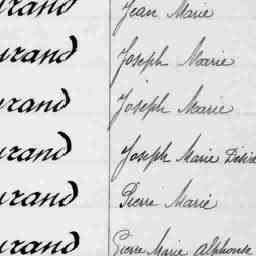 urand Jean Marie
urand Joseph Marie
urand Joseph Marie
urand Joseph Marie Désiré
urand Pierre Marie
urand Pierre Marie Alphonse